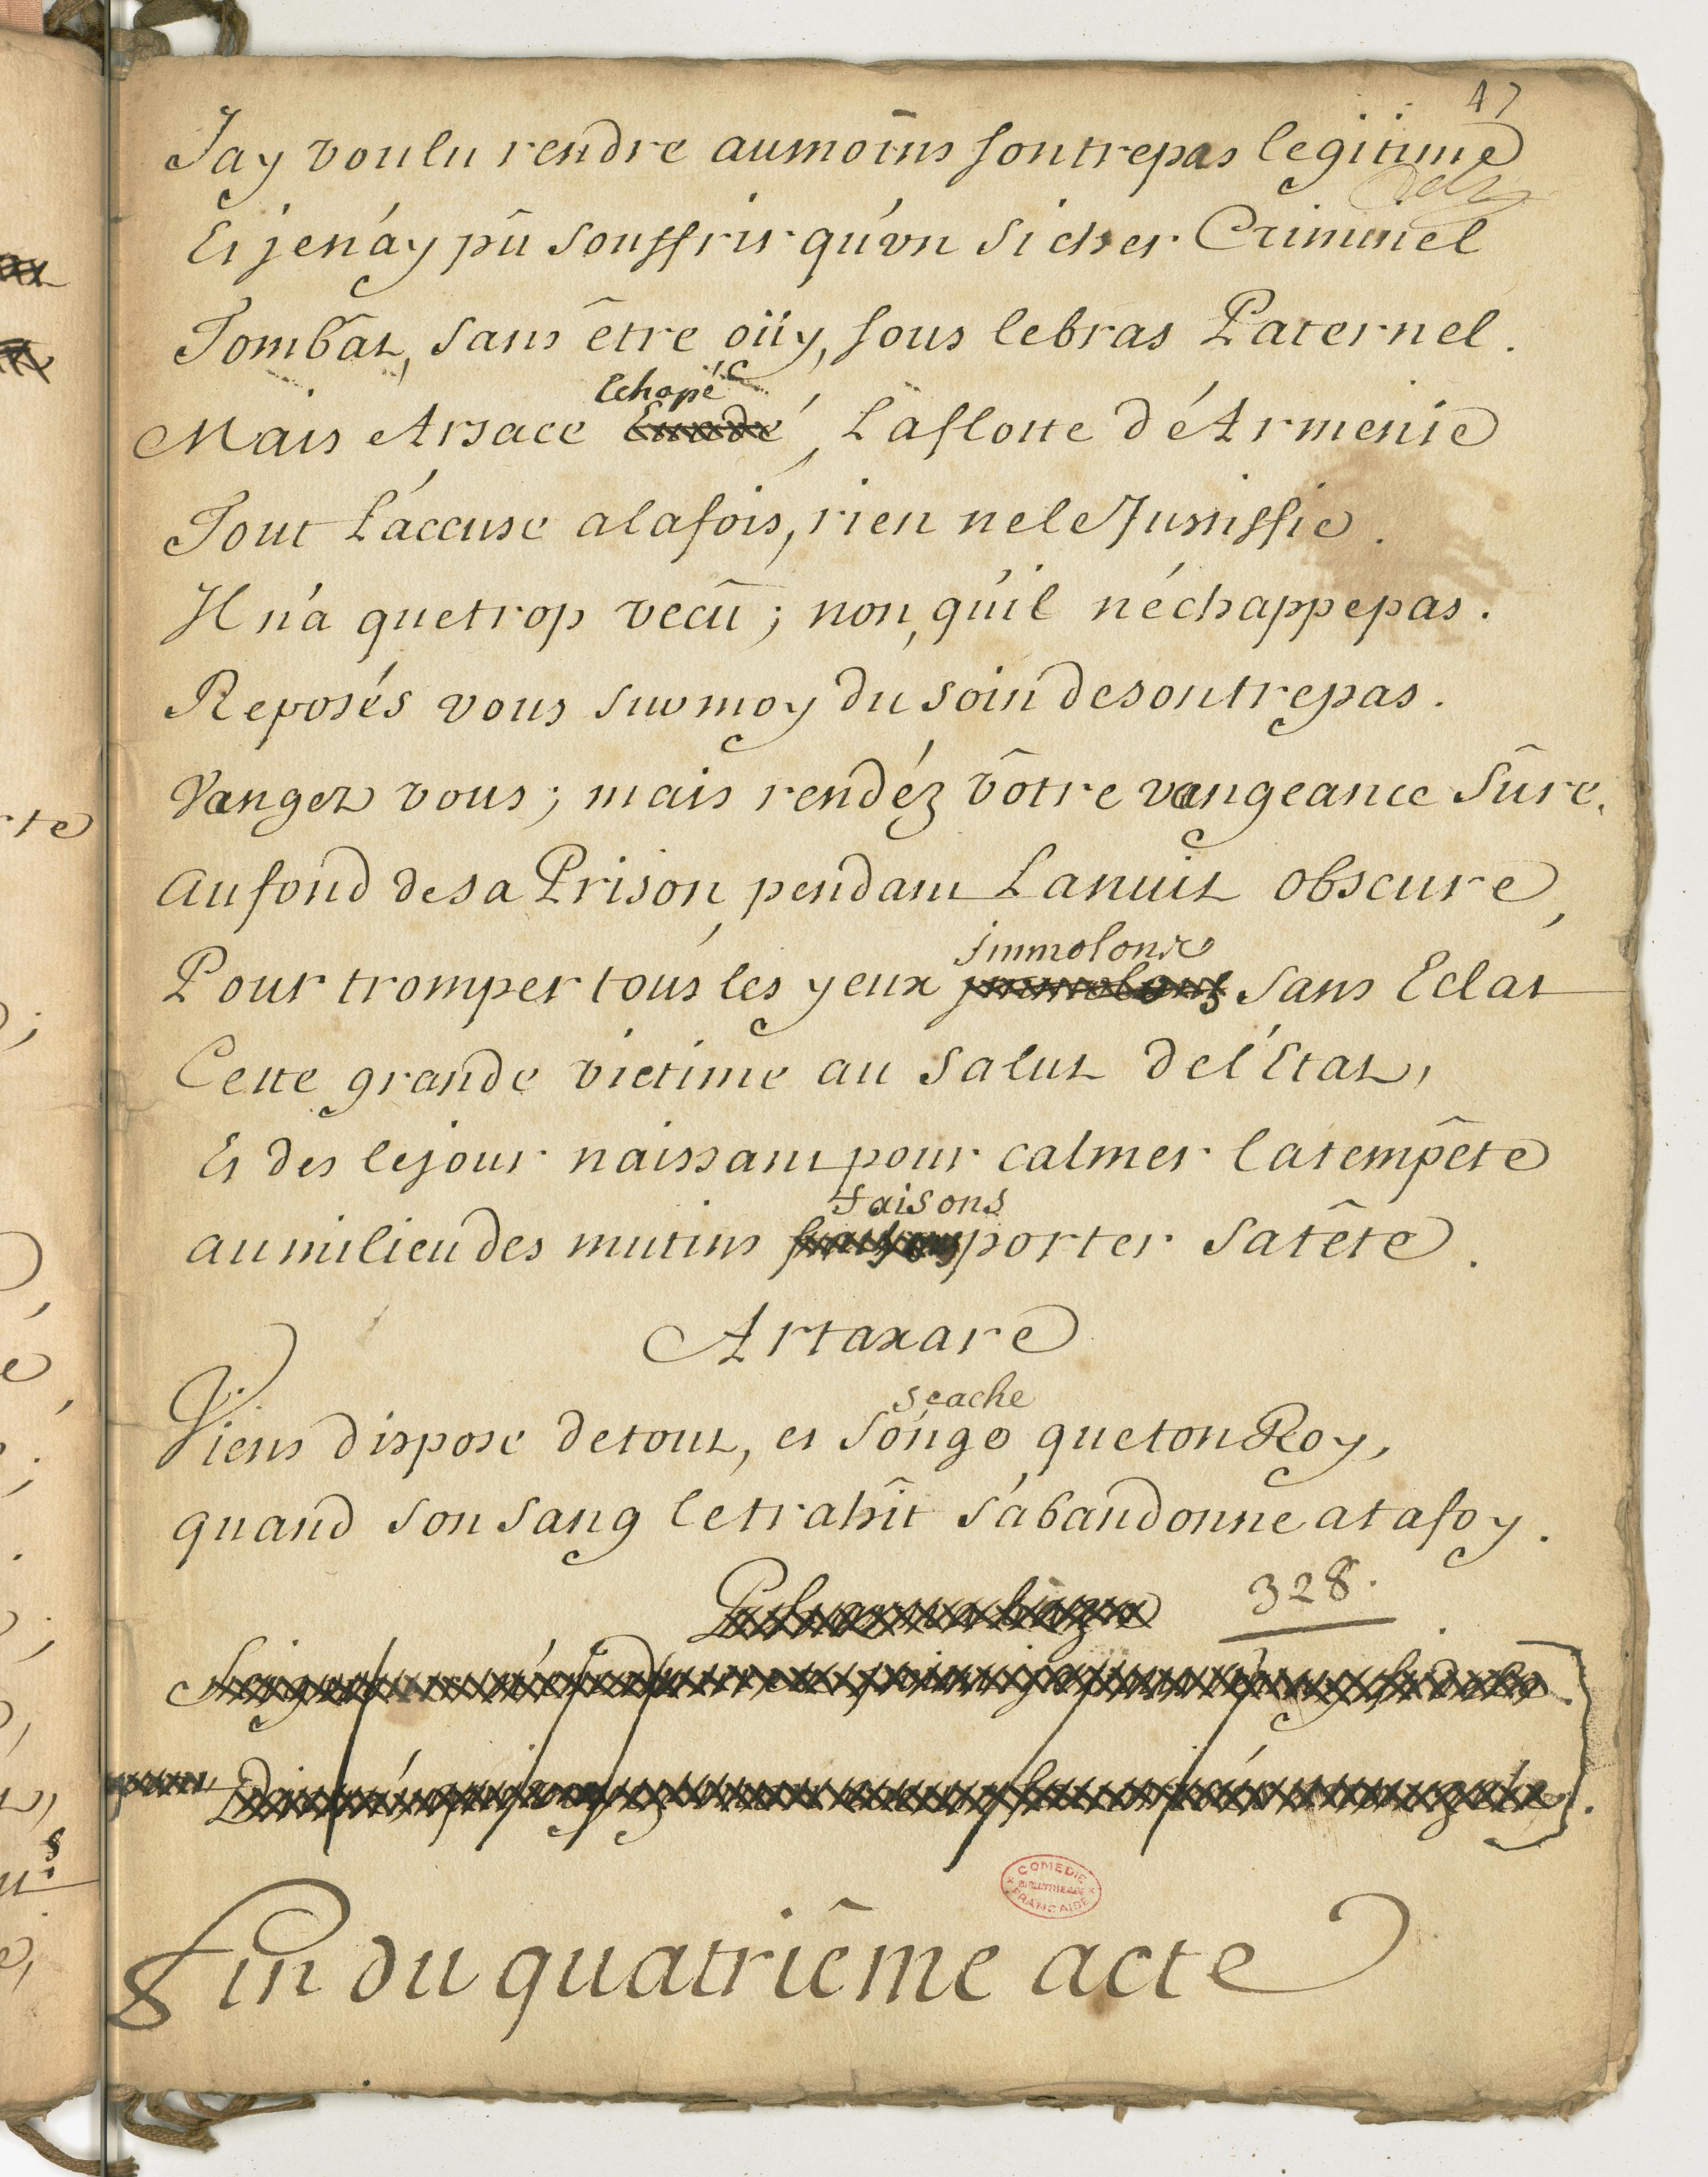 47
J'ay voulu rendre aumoins sontrepas legitime
Et jen'ay pû souffrir qu'vn si cher Criminel
Tombât, sans être oüy, sous lebras Paternel.
echapé
Mais Arsace Evadé, Laflotte d'Armenie
Tout L'accuse alafois, rien nele Justiffie.
Il n'a quetrop vécû; non, qu'il n'échappepas.
Reposés vous surmoy du soin desontrepas.
Vangez vous; mais rendéz vôtre vangeance sûre.
Aufond desa Prison, pendant Lanuit obscure,
jmmolons
Pour tromper tous les yeux jmmolons sans Eclat
Cette grande victime au salut del'Etat,
Et dés lejour naissant pour calmer latempête
aumilieu des mutins faisons porter satête.
faisons
Artaxare
scache
Viens dispose detout, et songe queton Roy,
quand son sang letrahit s'abandonne atafoy.
328.
Fin du quatriême acte
COMEDIE FRANCAISE